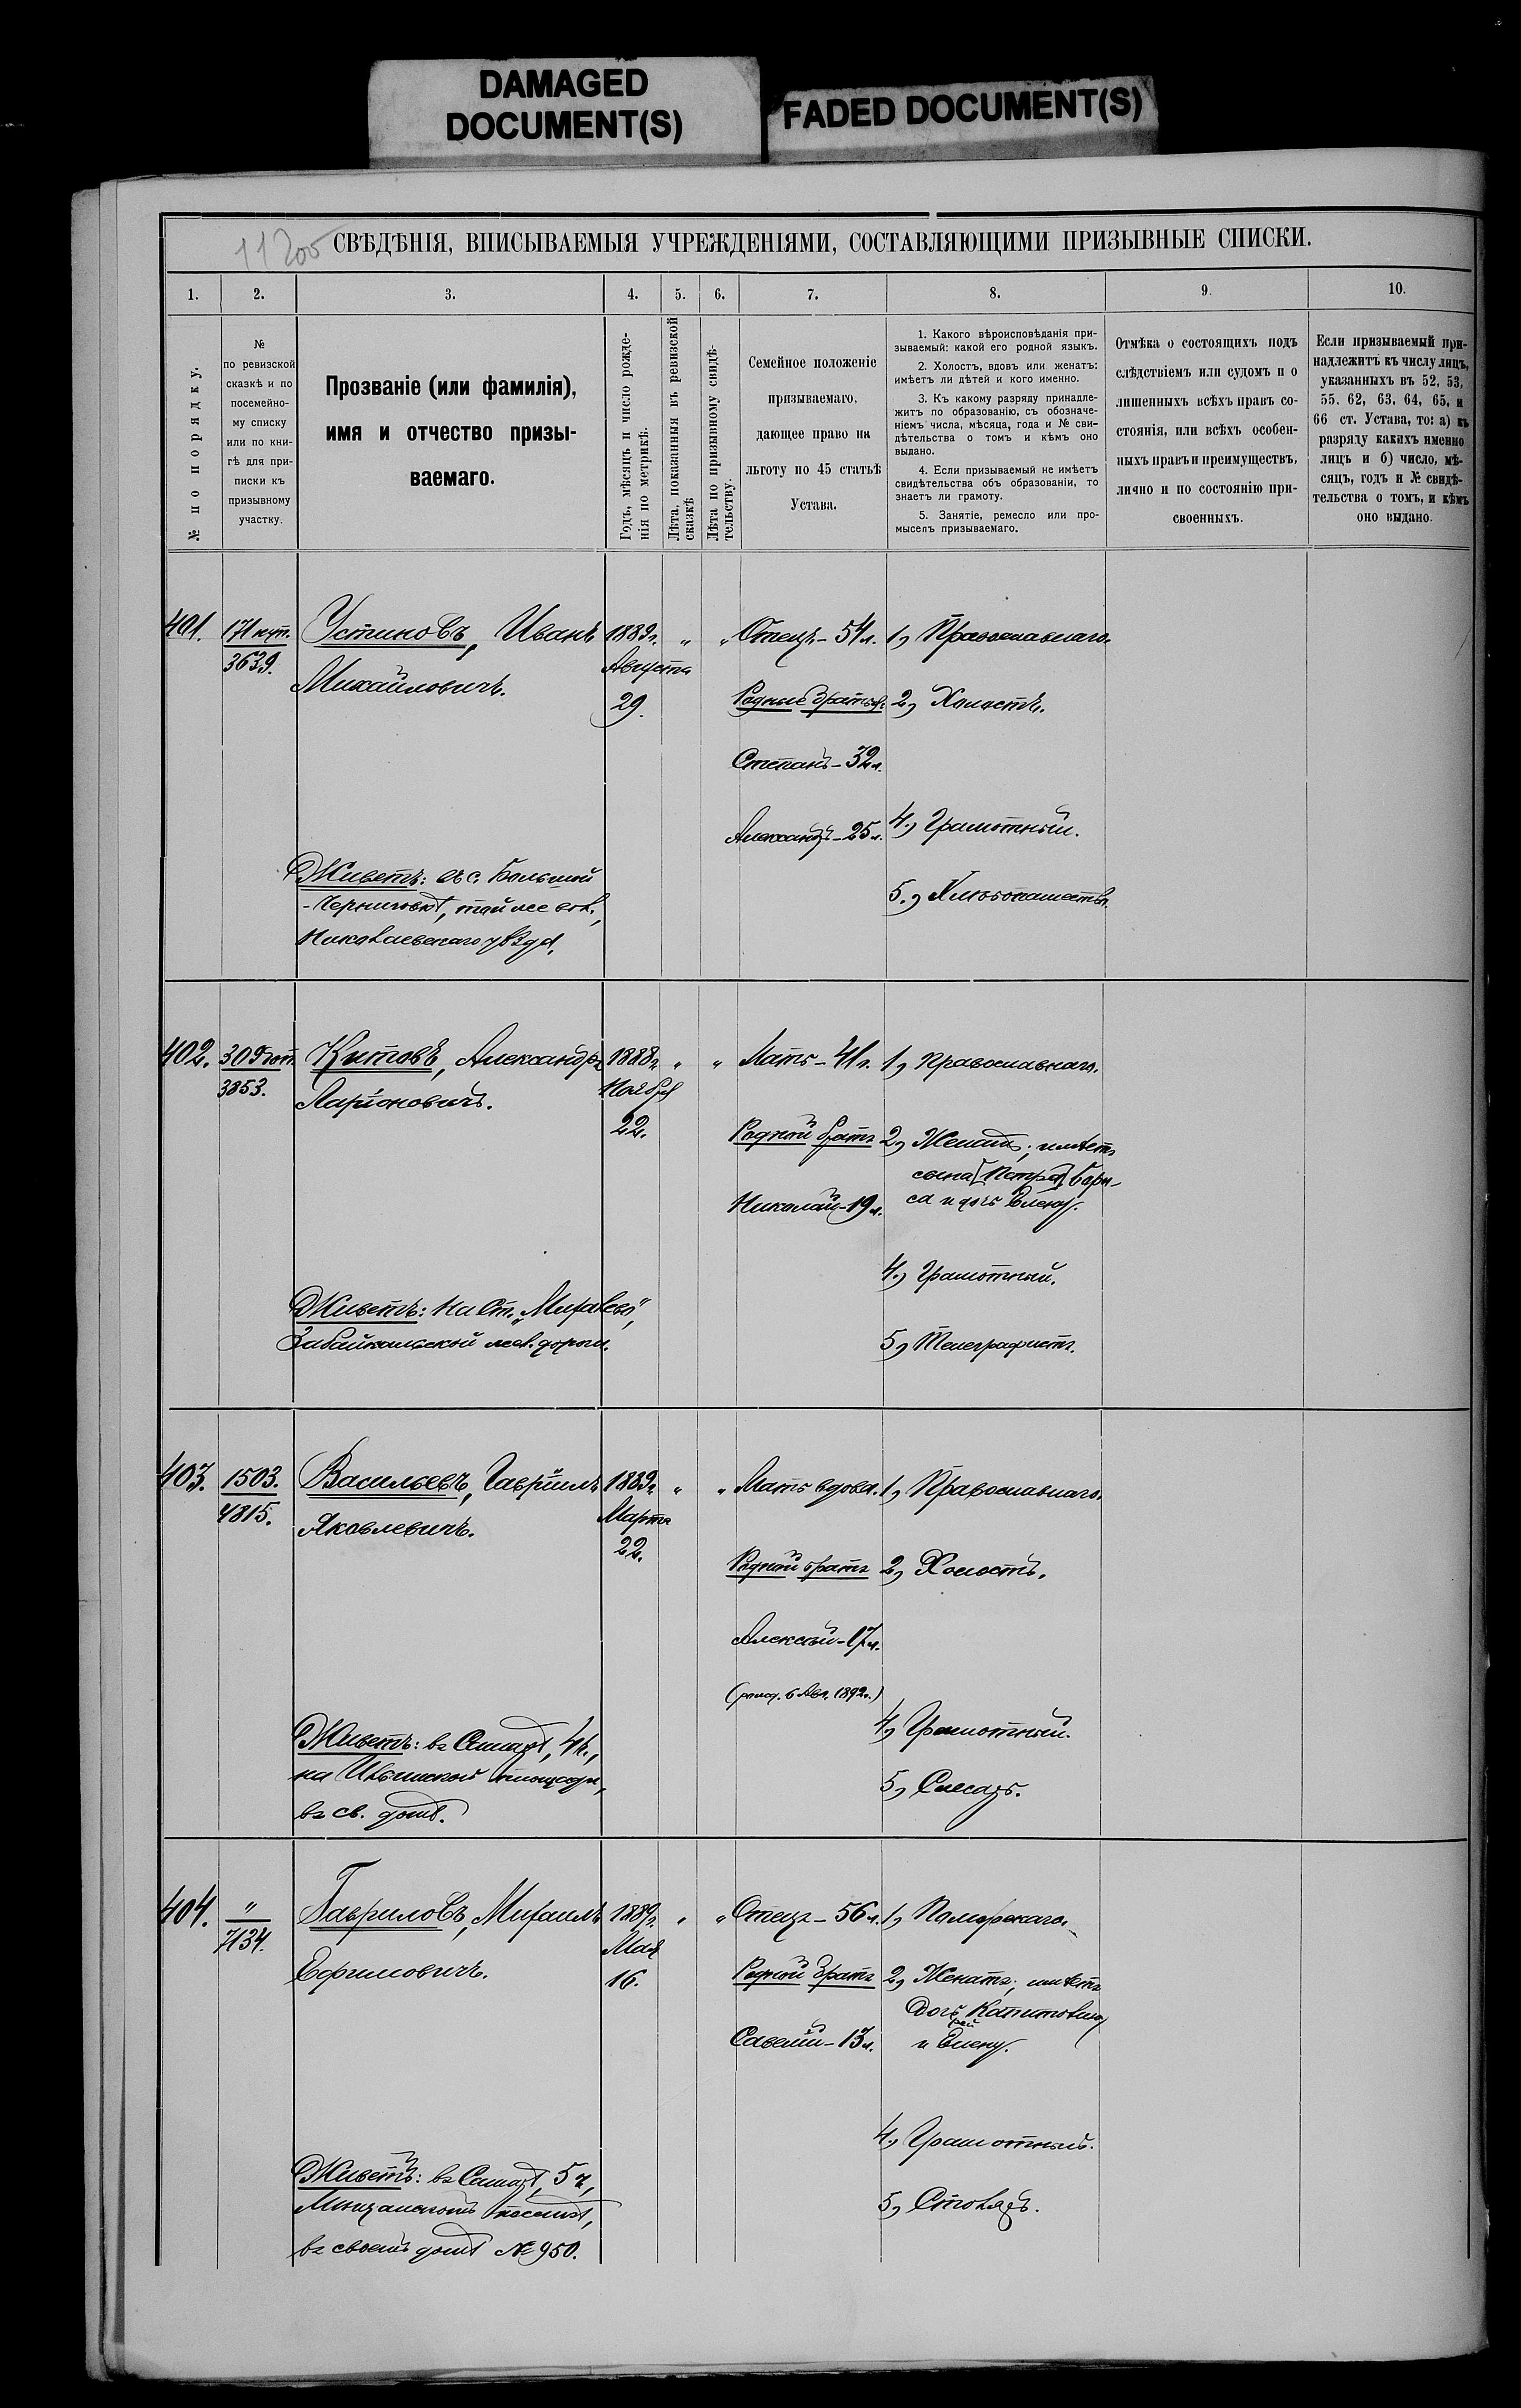 DAMAGED
DOCUMENT(S)
FADED DOCUMENT(S)
11200
СВѢДѢНІЯ, ВПИСЫВАЕМЫЯ УЧРЕЖДЕНІЯМИ, СОСТАВЛЯЮЩИМИ ПРИЗЫВНЫЕ СПИСКИ.
1.
2.
3.
4.
5.
6.
7.
8.
9.
10.
№ по порядку.
№
по ревизской
сказкѣ и по
посемейно-
му списку
или по кни-
гѣ для при-
писки къ
призывному
участку.
Прозваніе (или фамилія),
имя и отчество призы-
ваемаго.
Годъ, мѣсяцъ и число рожде-
нія по метрикѣ.
Лѣта, показанныя въ ревизской
сказкѣ
Лѣта по призывному свидѣ-
тельству.
Семейное положеніе
призываемаго,
дающее право на
льготу по 45 статьѣ
Устава.
1. Какого вѣроисповѣданія при-
зываемый: какой его родной языкъ.
2. Холостъ, вдовъ или женатъ:
имѣетъ ли дѣтей и кого именно.
3. Къ какому разряду принадле-
житъ по образованію, съ обозначе-
ніемъ числа, мѣсяца, года и № сви-
дѣтельства о томъ и кѣмъ оно
выдано.
4. Если призываемый не имѣетъ
свидѣтельства объ образованіи, то
знаетъ ли грамоту.
5. Занятіе, ремесло или про-
мыселъ призываемаго.
Отмѣка о состоящихъ подъ
слѣдствіемъ или судомъ и о
лишенныхъ всѣхъ правъ со-
стоянія, или всѣхъ особен-
ныхъ правъ и преимуществъ,
лично и по состоянію при-
своенныхъ.
Если призываемый при-
надлежитъ къ числу лицъ,
указанныхъ въ 52, 53,
55. 62, 63, 64, 65, и
66 ст. Устава, то: а) къ
разряду какихъ именно
лицъ и б) число, мѣ-
сяцъ, годъ и № свидѣ-
тельства о томъ, и кѣмъ
оно выдано.
401.
171 куп.
3639.
Устиновъ, Иванъ
Михайловичъ.
Живетъ: въ с. Большой
-Черниговкѣ, той же вол.,
Николаевскаго уѣзда.
1889г.
Августа
29.
"
"
Отецъ - 54 л.
Родные братья:
Степанъ - 32 л.
Александръ - 25 л.
1, Православнаго.
2, Холостъ.
4., Грамотный.
5., Хлѣбопашество.
402.
3853.
Китовъ, Александръ
Ларіоновичъ.
Живетъ: на Ст.
Забайкальской жел. дороги.
1888г.
Ноября
22.
"
"
Мать - 41 г.
Родной братъ
Николай - 19 л.
1, Православнаго.
2, Женатъ; имѣетъ
сына [Петра] Бори-
са и дочь Елену.
4., Грамотный.
5, Телеграфистъ.
403.
1503.
4815.
Васильевъ, Гавріилъ
Яковлевичъ.
Живетъ: въ Самарѣ, 4 ч.,
на Ильинской площади,
въ св. домѣ.
1889г.
Марта
22.
"
"
Мать вдова.
Родной братъ
Алексѣй - 17 л.
(рожд. 6 Авг. 1892 г.)
1, Православнаго.
2, Холостъ.
4, Грамотный.
5, Слесарь.
404.
"
7134.
Гавриловъ, Михаилъ
Ефимовичъ.
Живетъ: въ Самарѣ, 5 ч.,
Мещанскомъ поселкѣ,
въ своемъ домѣ № 950.
1889г.
Мая
16.
"
"
Отецъ - 56 л.
Родной братъ
Савелій - 13 л.
1, Поморскаго.
2, Женатъ; имѣетъ
Дочерей Капитолину
и Елену.
4, Грамотный.
5, Столяръ.